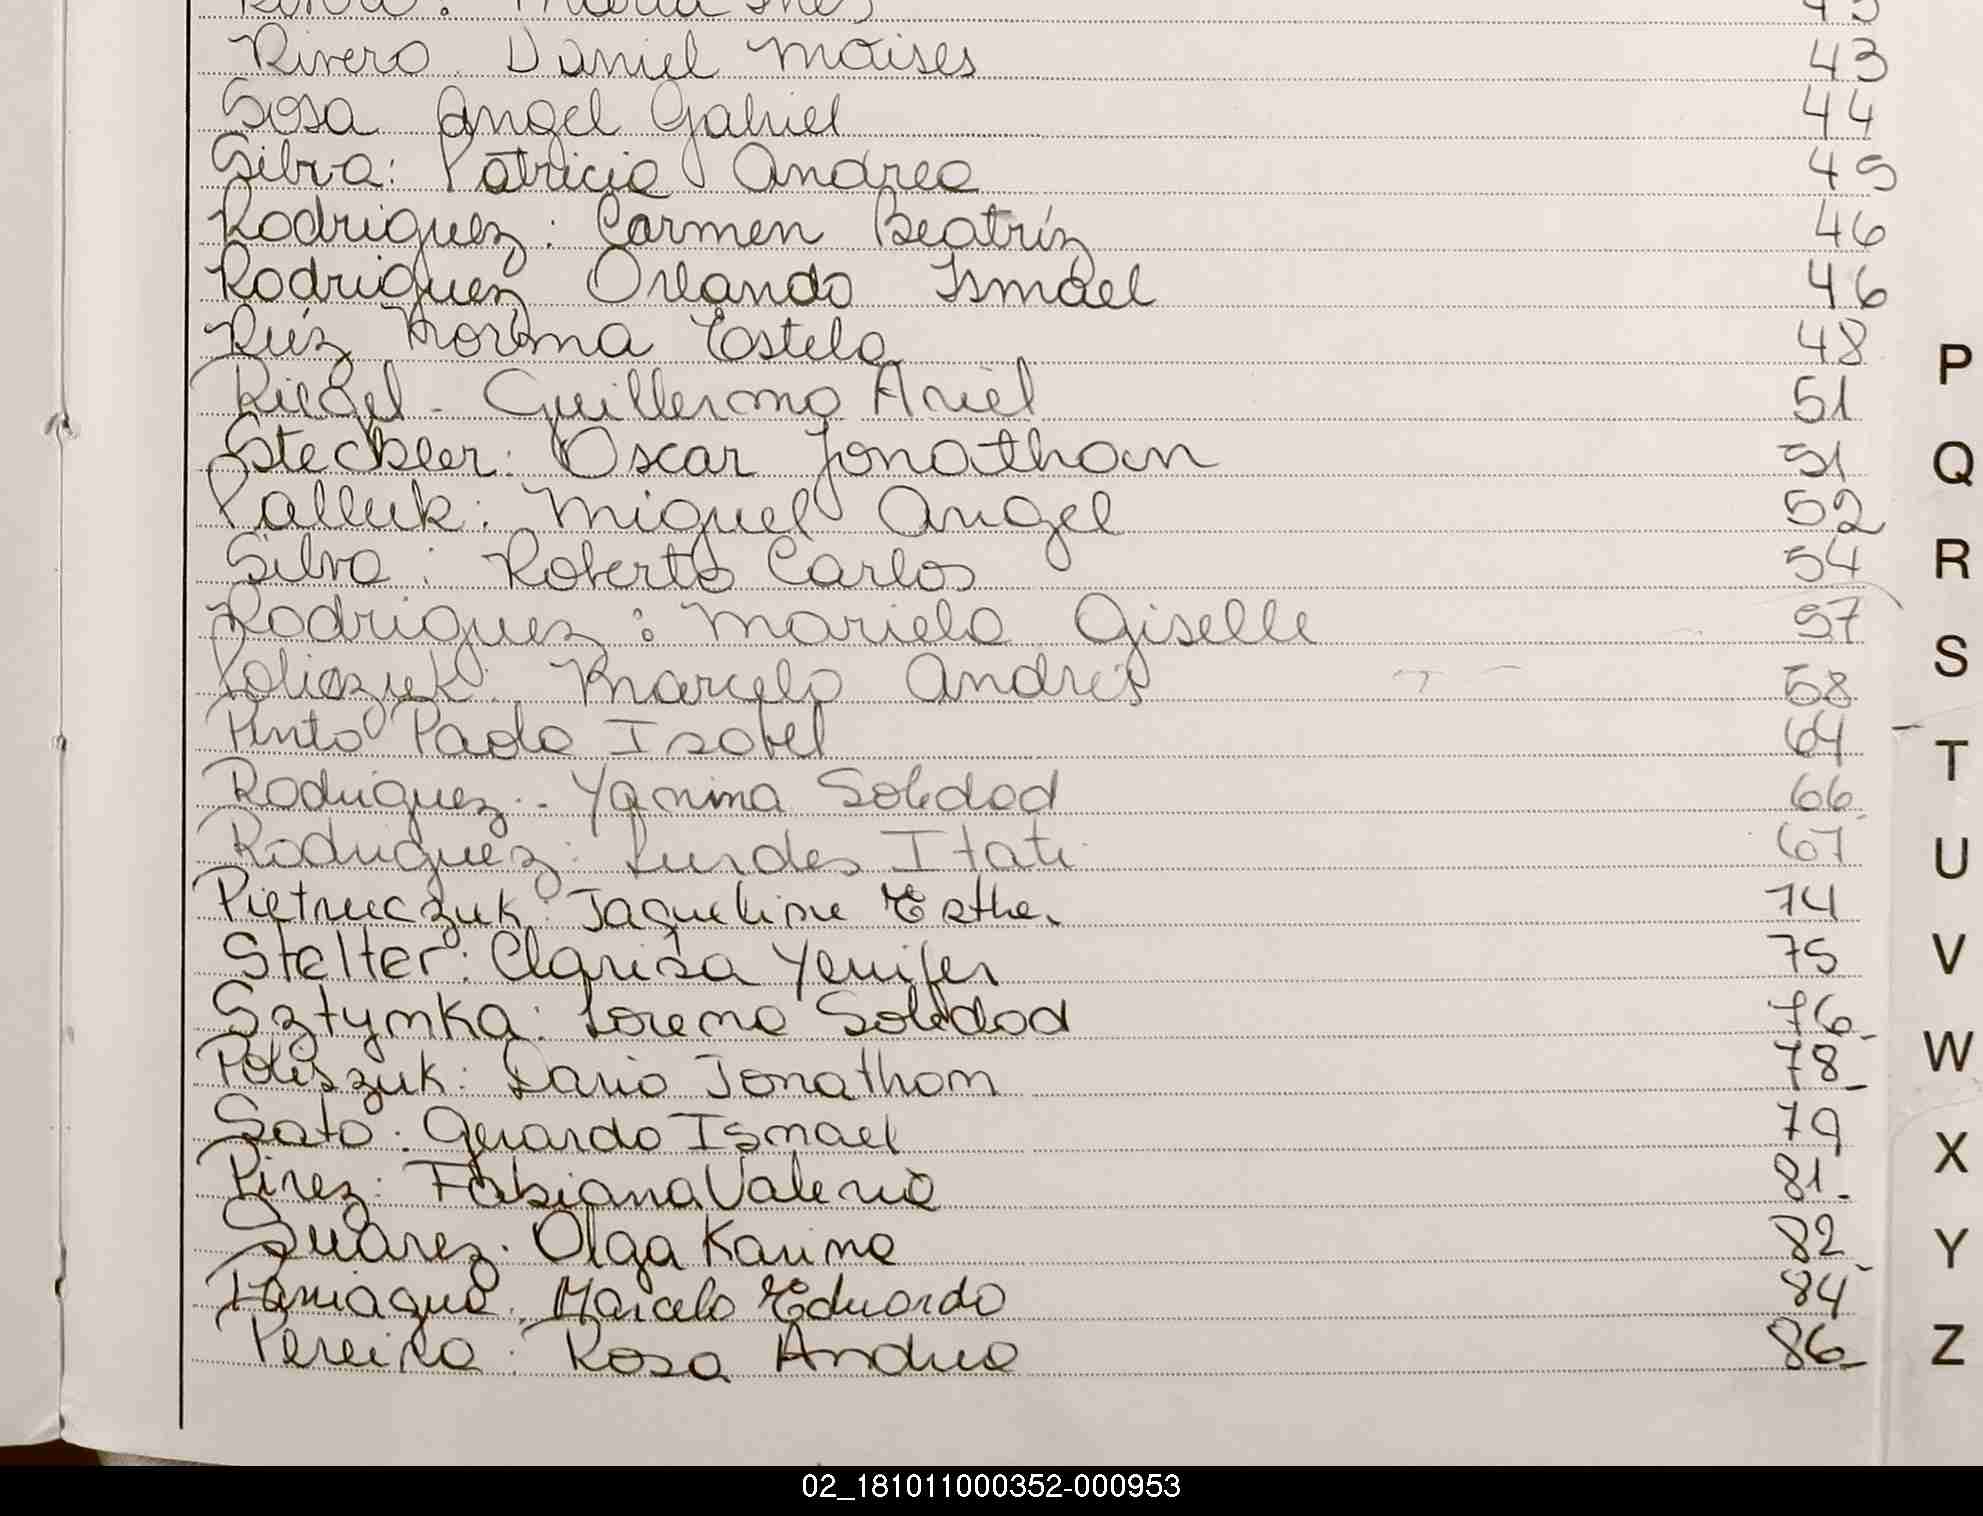 María Inés 43
Rivero Daniel Moises 43
Sosa Angel Gabriel 44
Silva: Patricia Andrea 45
Rodriguez: Carmen Beatríz 46
Rodriguez Orlando Ismael 46
Ruíz Norma Estela 48
Riedel - Guillermo Ariel 51
Steckler: Oscar Jonathan 51
Palluk: Miguel Angel 52
Silva: Roberto Carlos 54
Rodriguez: Mariela Giselle 57
Poliszuk: Marcelo Andrés 58
Pinto Paola Isabel 64
Rodriguez.- Yanina Soledad 66
Rodriguez: Lurdes Itati 67
Pietruczuk: Jaqueline Esther 74
Stelter: Clarisa Yenifer 75
Sztymka: Lorena Soledad 76
Poliszuk: Dario Jonathan 78
Soto: Gerardo Ismael 79
Pirez: Fabiana Valeria 81
Suarez: Olga Karina 82
Paniagua. Marcelo Eduardo 84
Pereira: Rosa Andrea 86
P
Q
R
S
T
U
V
W
X
Y
Z
02_181011000352-000953